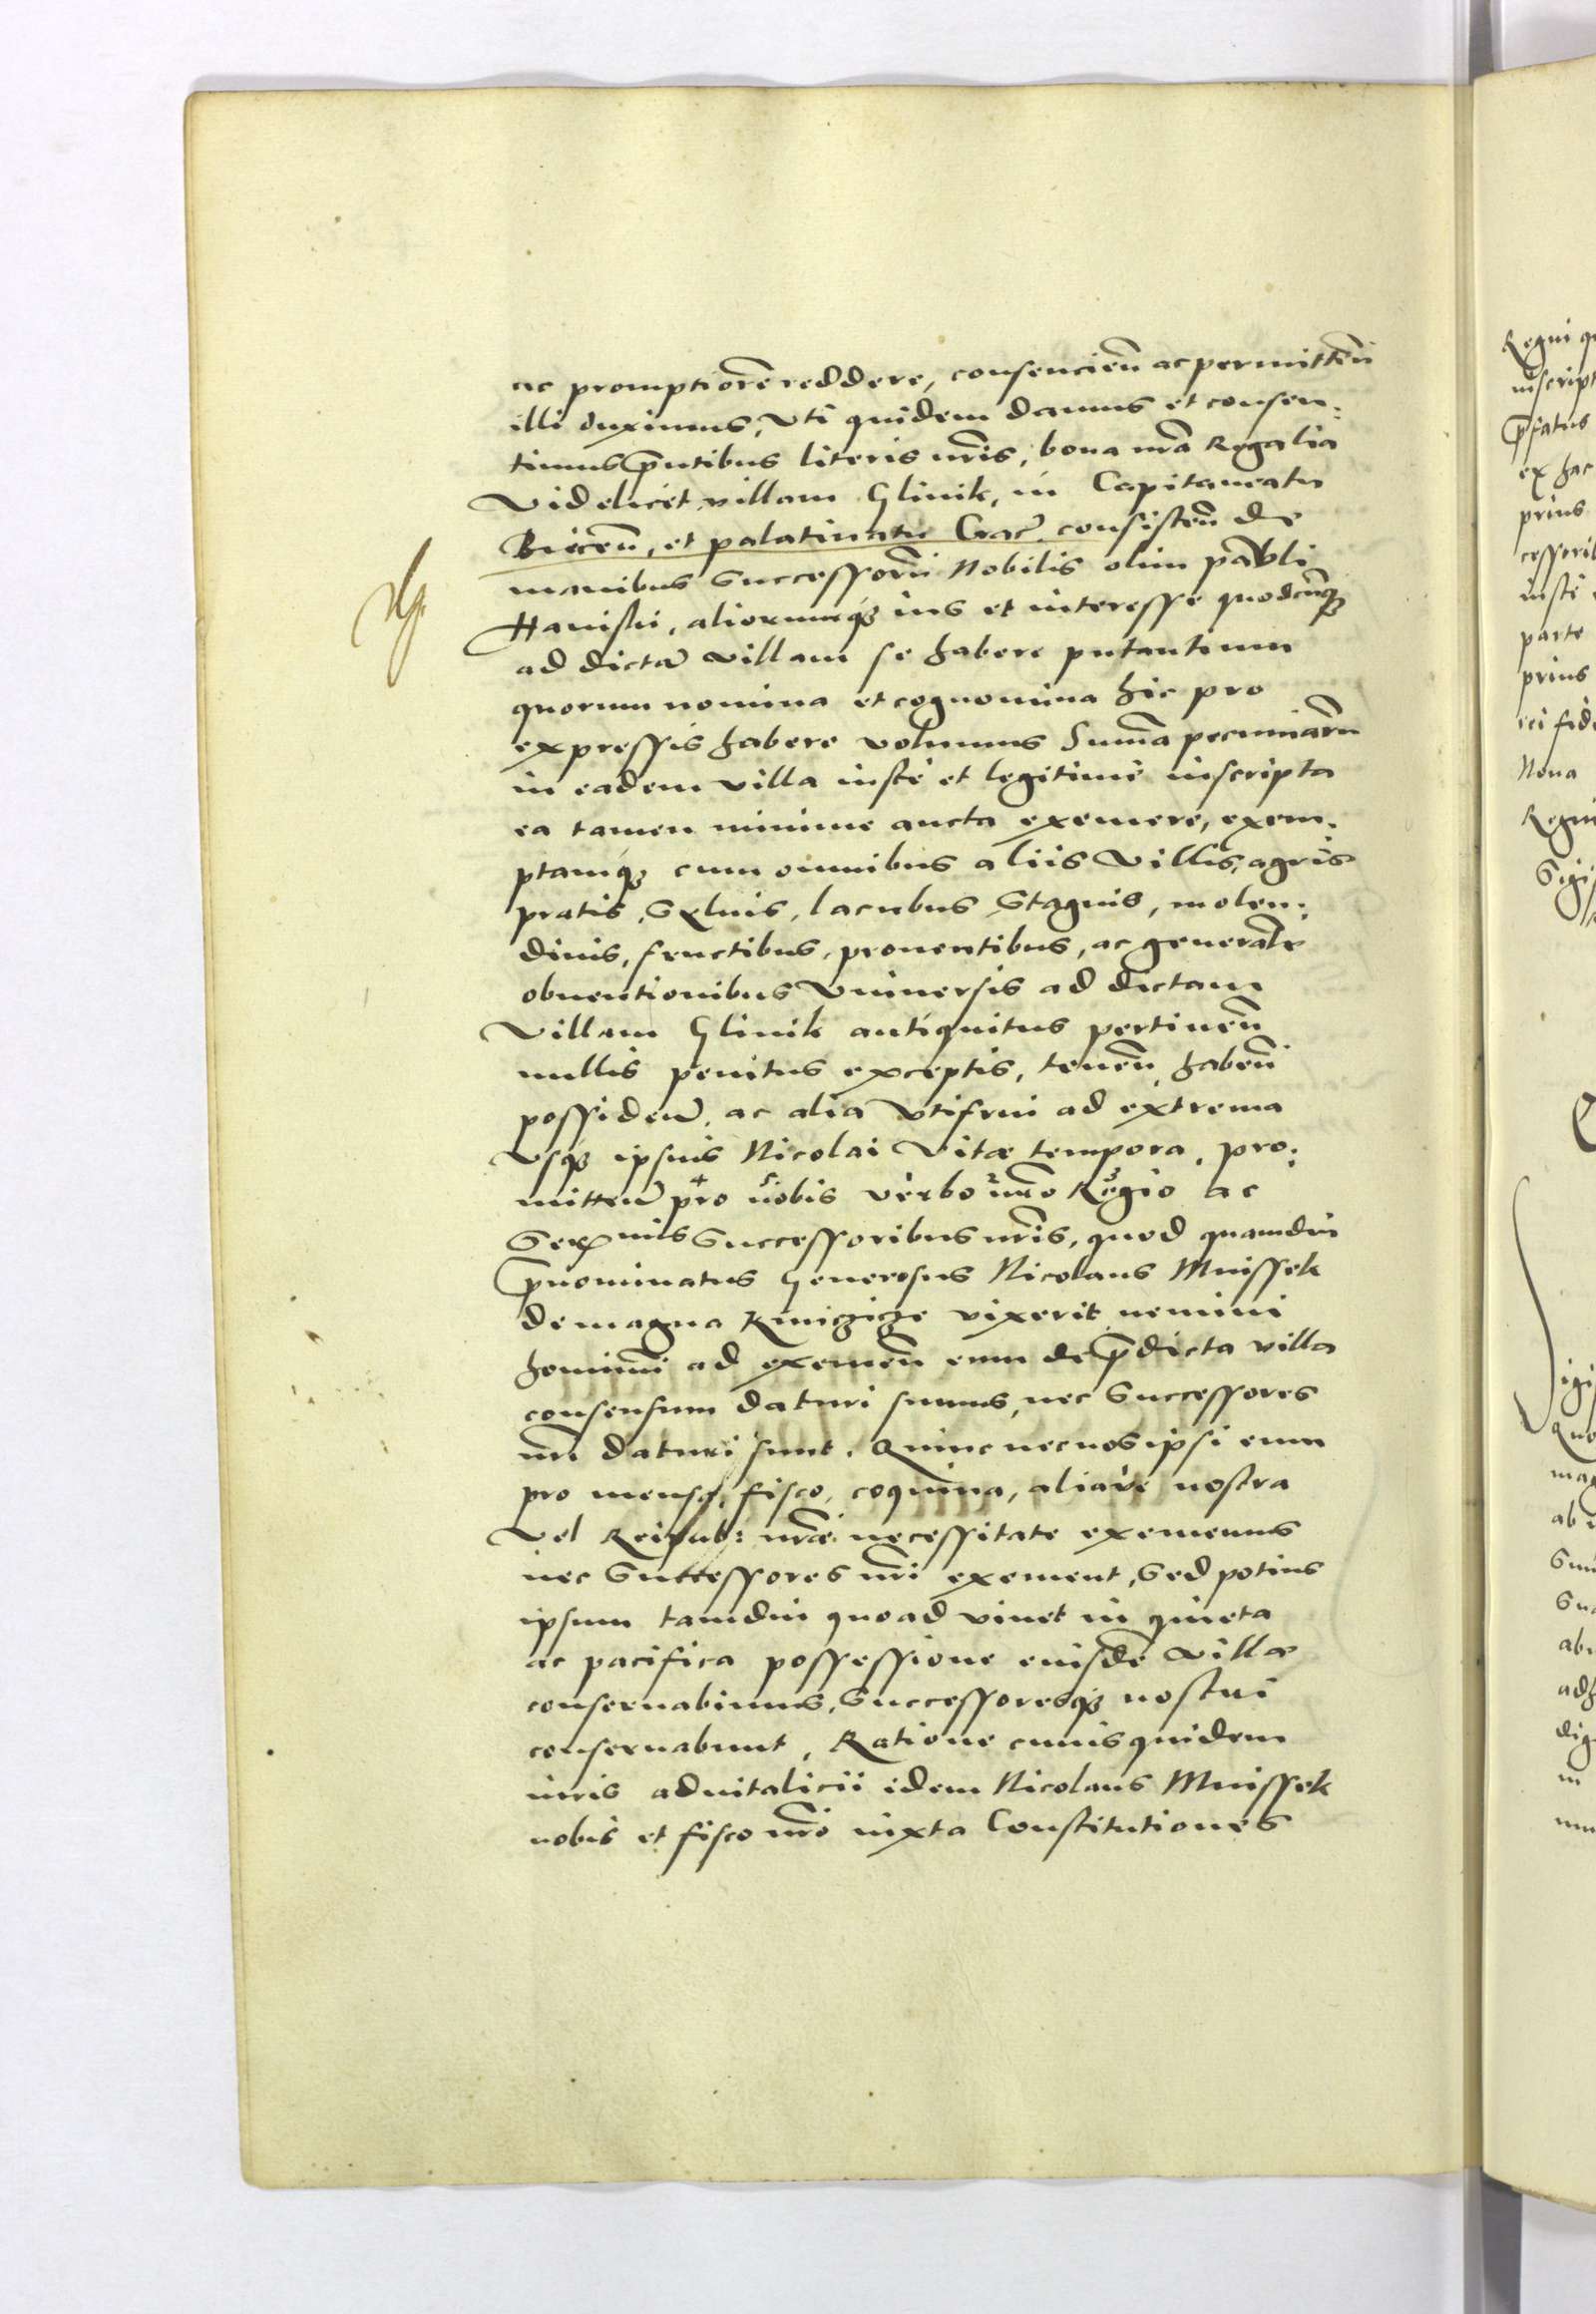 ac promptiorē reddere, consencieñ ac permitteñ
illi duximus, Vti quidem damus et consen:
timus p̄ntibus literis nr̄is, bona nr̄a Regalia
Videlicet villam Glinik, in Capitaneatu
Biecen̄, et palatinatu Crac̄. consisten̄ de
manibus Successorū Nobilis olim pavli
Haniski, aliorumq3 ius et interesse quodcūq3
ad dictā villam se habere putantium
quorum nomina et cognomina hic pro
expressis habere volumus Sum̄a pecuniarū
in eadem villa iuste et legitime inscripta
ea tamen minime aucta exemere, exem:
ptamq3 cum omnibus aliis Villis, agris
pratis, Sylvis, lacubus Stagnis, molen:
dinis, fructibus, prouentibus, ac generalr̄
obuentionibus Vniuersis ad dictam
Villam Glinik antiquitus pertinen̄
nullis penitus exceptis, tenen̄ haben̄
possiden̄. ac alia Vtifrui ad extrema
Vsq3 ipsius Nicolai Vitæ tempora, pro:
mitten̄ pro nobis verbo nr̄o Regio ac
Ser̄mis Successoribus nr̄is, quod quamdiu
p̄nominatus Generosus Nicolaus Mnissek
de magna Kunczicze vixerit nemini
homini ad exemen̄ eum de p̄dicta villa
consensum daturi sumus, nec Successores
nr̄i daturi sunt. Quinc nec nos ipsi eum
pro mensa, fisco, coquina, aliave nostra
Vel Reipub: nr̄æ necessitate exememus
nec Successores nr̄i exement, Sed potius
ipsum tamdiu quoad viuet in quieta
ac pacifica possessione eiusdē villæ
conseruabimus, Successoresq3 nostri
conseruabunt, Ratione cuius quidem
iuris aduitalicii idem Nicolaus Mnissek
nobis et fisco nr̄o iuxta Constitutiones